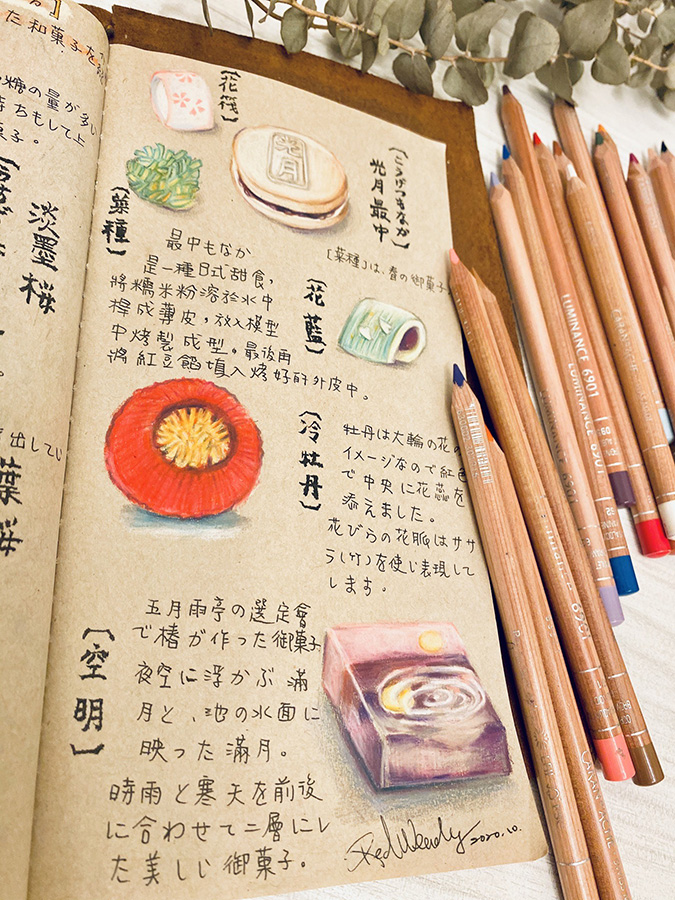 た和菓子
糖の量が多い
持ちもして上
菓子。
淡墨桜
出してい
葉桜
〔花筏〕
光月
〔こうげつもなか〕
光月最中
〔菜種〕
〔菜種〕は、春の御菓子
最中もなか
是一種日式甜食,
將糯米粉溶於水中
桿成薄皮,放入模型
中烤製成型。最後再
將紅豆餡填入烤好的外皮中。
〔花藍〕
〔冷牡丹〕
牡丹は大輪の花の
イメージなので紅色
で中央に花蕊を
添えました。
花びらの花脈はササ
ラ(竹)を使い表現して
します。
〔空明〕
五月雨亭の選定會
で椿が作った御菓子
夜空に浮かぶ滿
月と、池の水面に
映った滿月。
時雨と寒天を前後
に合わせて二層にし
た美しい御菓子。
2020.10.
LUMINANCE 6901
LUMINANCE 6901
6901